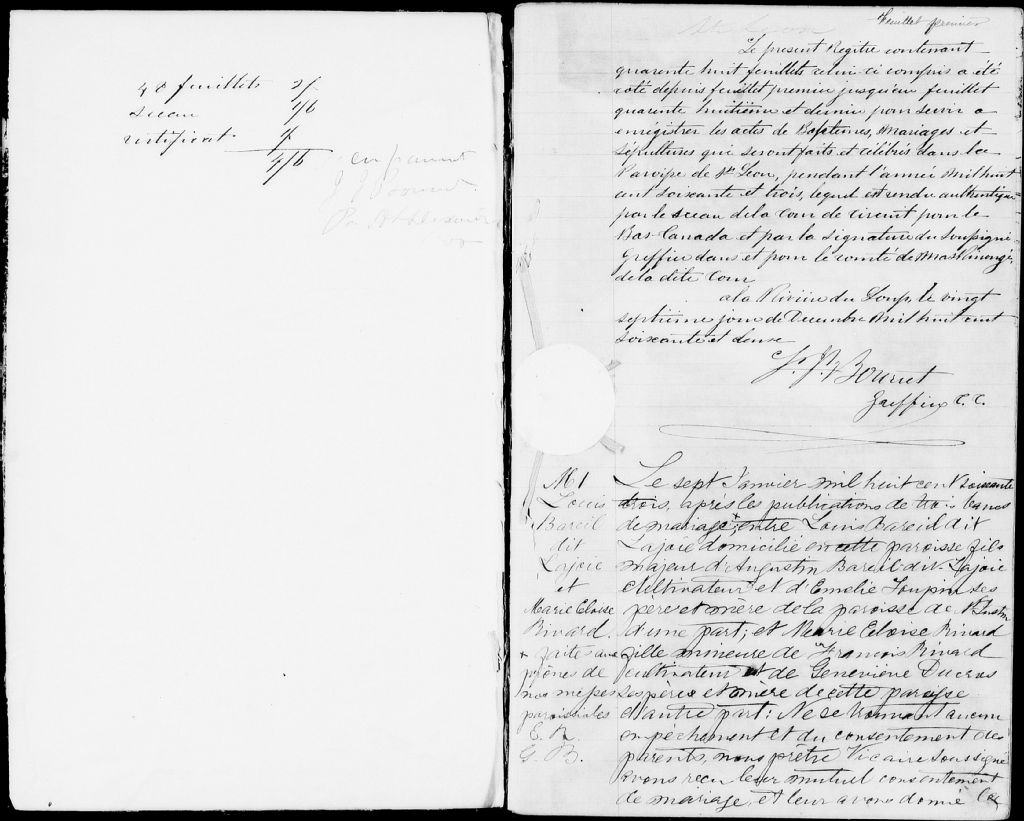 48 feuillets 2/.
sceau 1/6
certificat 1/.
4/6
Feuillet premier
St Léon
Le présent Régitre contenant
quarente huit feuillets celui-ci compris a été
coté depuis feuillet premier jusqu'au feuillet
quarente huitième et dernier pour servir a
enregistrer les actes de Baptemes, Mariages et
Sépultures qui seront faits et célébrés dans la
Paroisse de St Léon, pendant l'année Mil huit
cent soixante et trois, lequel est rendu authentique
par le sceau de la Cour de Circuit pour le
Bas-Canada et par la signature du Soussigné
Greffier dans et pour le comté de Maskinongé
de la dite Cour
a la Rivière du Loup, le vingt
septieme jour de Decembre Mil huit cent
soixante et deuse
Greffier C. C.
M 1
Louis
Bareil
dit
Lajoie
et
Marie Eloise
Rivard.
+ faites aux
prônes de
nos messes
paroissiales
E. R.
G. B.
Le sept Janvier mil huit cent soixante
trois, après les publications de trois bancs
de mariage,+ entre Louis Bareil dit
Lajoie domicilié en cette paroisse fils
majeur d'Augustin Bareil dit Lajoie
cultivateur et d'Emelie Toupin ses
père et mère de la paroisse de St Justin
d'une part; et Marie Eloise Rivard
fille mineure de François Rivard
cultivateur et de Geneviève Ducros
ses père et mère de cette paroisse
d'autre part: Ne se trouvant aucun
empéchement et du consentement des
parents, nous prêtre Vicaire soussigné
avons reçu leur mutuel consentement
de mariage, et leur avons donné la